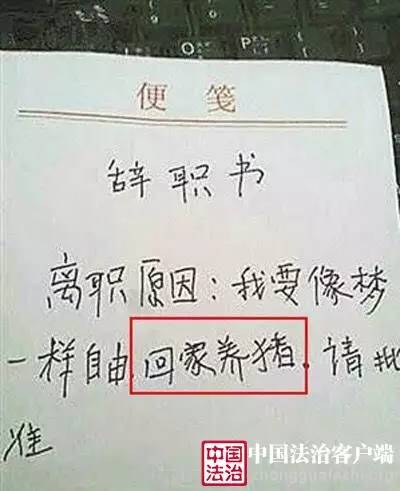 O P
便笺
辞职书
离职原因：我要像梦
一样自由.回家养猪.请批
准
中国法治
中国法治客户端